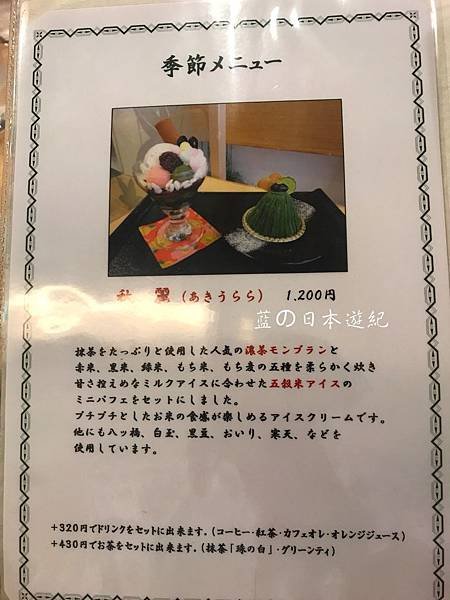 季節メニュー
秋 麗(あきうらら) 1,200円
蓝の日本遊紀
抹茶をたっぷりと使用した人気の濃茶モンブランと
赤米、黒米、緑米、もち米、もち麦の五種を柔らかく炊き
甘さ控えめなミルクアイスに合わせた五穀米アイスの
ミニパフェをセットにしました。
プチプチとしたお米の食感が楽しめるアイスクリームです。
他にも八ッ橋、白玉、黒豆、おいり、寒天、などを
使用しています。
+320円でドリンクをセットに出来ます。(コーヒー・紅茶・カフェオレ・オレンジジュース)
+430円でお茶をセットに出来ます。(抹茶「珠の白」・グリーンティ)